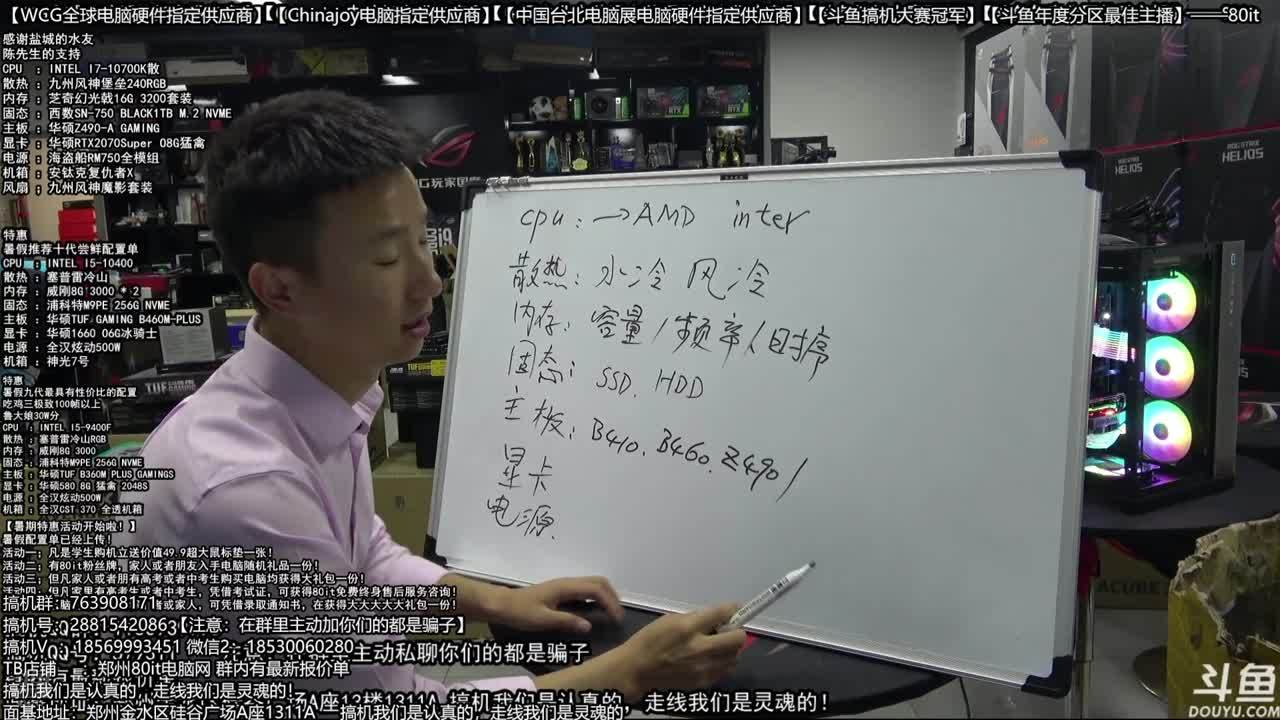 【WCG全球电脑硬件指定供应商】【Chinajoy电脑指定供应商】【中国台北电脑展电脑硬件指定供应商】【斗鱼搞机大赛冠军】【斗鱼年度分区最佳主播】——80it
感谢盐城的水友
陈先生的支持
CPU ：INTEL I7-10700K散
散热：九州风神堡垒240RGB
内存：芝奇幻光戟16G 3200套装
固态：西数SN-750 BLACK1TB M.2 NVME
主板：华硕Z490-A GAMING
显卡：华硕RTX2070Super 08G猛禽
电源：海盗船RM750全模组
机箱：安钛克复仇者X
风扇；九州风神魔影套装
特惠
暑假推荐十代尝鲜配置单
CPU ：INTEL I5-10400
散热：塞普雷冷山
内存：威刚8G 3000 * 2
固态：浦科特M9PE 256G NVME
主板：华硕TUF GAMING B460M-PLUS
显卡：华硕1660 06G冰骑士
电源：全汉炫动500W
机箱：神光7号
特惠
暑假九代最具有性价比的配置
吃鸡三极致100帧以上
鲁大娘30W分
CPU ：INTEL I5-9400F
散热：塞普雷冷山RGB
内存：威刚8G 3000
固态：浦科特M9PE 256G NVME
主板：华硕TUF B360M PLUS GAMINGS
显卡：华硕580 8G 猛禽 2048S
电源：全汉炫动500W
机箱：全汉CST 370 全透机箱
【暑期特惠活动开始啦！】
暑假配置单已经上传！
活动一；凡是学生购机立送价值49.9超大鼠标垫一张！
活动二；有80it粉丝牌，家人或者朋友入手电脑随机礼品一份！
活动三；但凡家人或者朋有高考或者中考生购买电脑均获得大礼包一份！
活动四；但凡家里有高考生或者中考生，凭借考试证，可获得80it免费终身售后服务咨询！
搞机群:763908171
或家人，可凭借录取通知书，在获得大大大大大礼包一份！
搞机号:2881542086【注意：在群里主动加你们的都是骗子】
搞机V:18569993451 微信2：18530060280
主动私聊你们的都是骗子
TB店铺 ：郑州80it电脑网 群内有最新报价单
搞机我们是认真的，走线我们是灵魂的！
A座13楼1311A 搞机我们是认真的，走线我们是灵魂的！
面基地址：郑州金水区硅谷广场A座1311A 搞机我们是认真的，走线我们是灵魂的
cpu：→AMD inter
散热：水冷 风冷
内存：容量/频率/时序
固态：SSD. HDD
主板：B410. B460. Z490/
显卡
电源
玩家国度
i9
RTX
HELIOS
HELIOS
斗鱼
DOUYU.COM